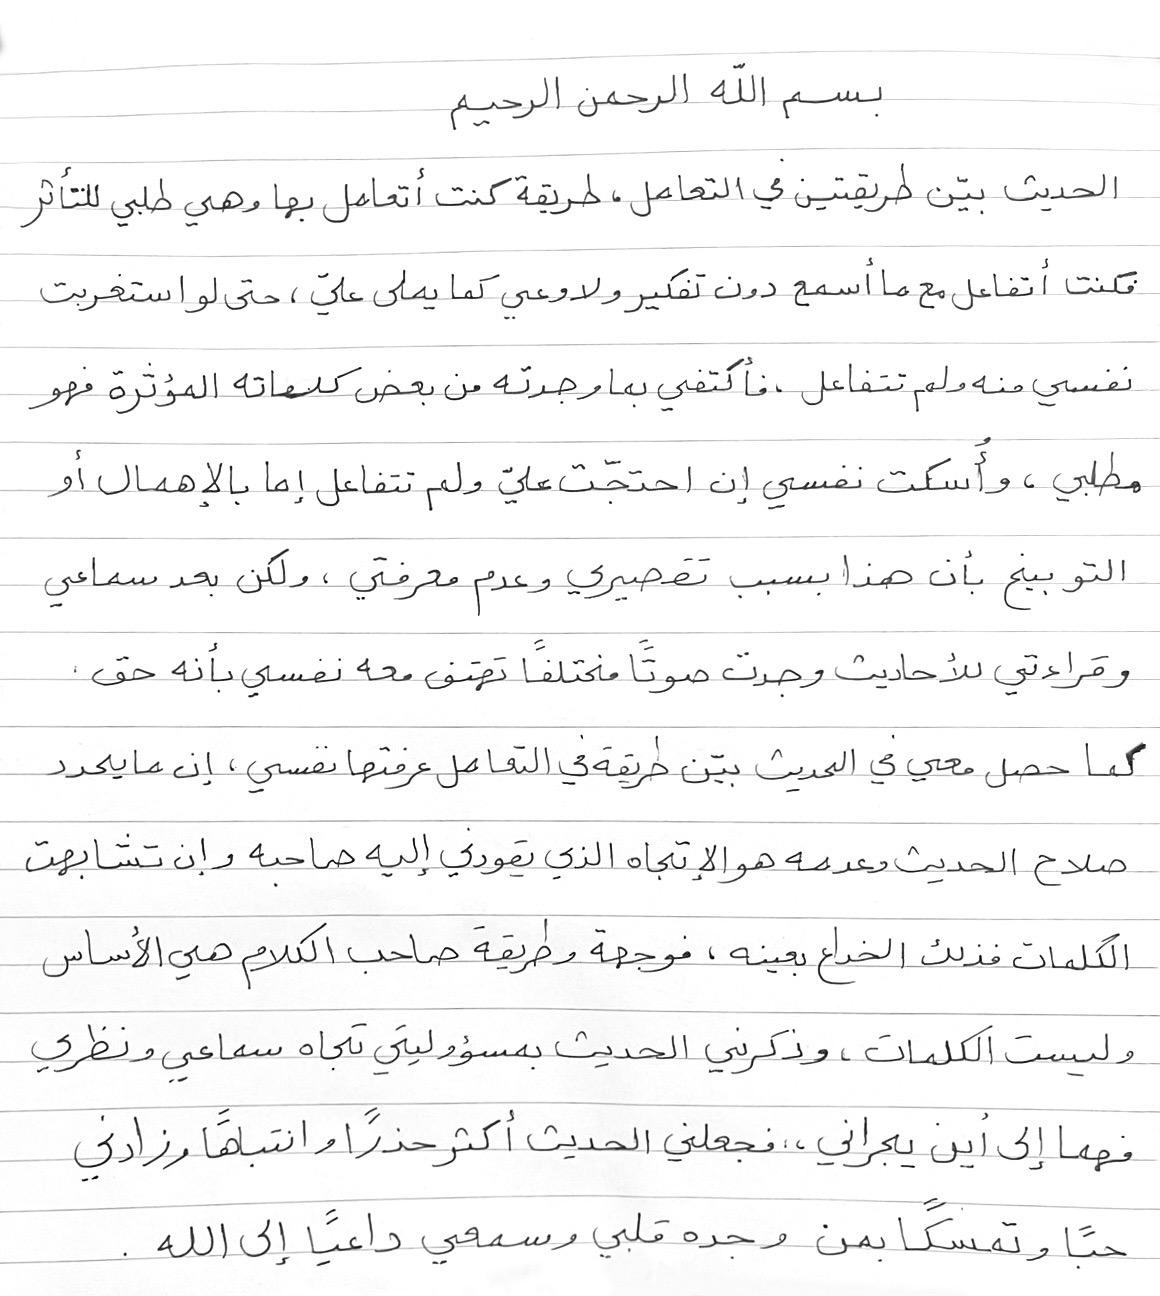 بسم اللّه الرحمن الرحيم
الحديث بيّن طريقتين في التعامل ، طريقة كنت أتعامل بها وهي طلبي للتأثر
فكنت أتفاعل مع ما أسمع دون تفكير ولا وعي كما يملى عليّ ، حتى لو استغربت
نفسي منه ولم تتفاعل . فأكتفي بما وجدته من بعض كلماته المؤثرة فهو
مطلبي ، وأُسكت نفسي إن احتجّت عليّ ولم تتفاعل إما بالإهمال أو
التوبيخ بأن هذا بسبب تقصيري وعدم معرفتي ، ولكن بعد سماعي
وقراءتي للأحاديث وجدت صوتًا مختلفًا تهتف معه نفسي بأنه حق .
كما حصل معي في الحديث بيّن طريقة في التعامل عرفتها نفسي ، إن ما يحدد
صلاح الحديث وعدمه هو الإتجاه الذي يقودني إليه صاحبه وإن تشابهت
الكلمات فذلك الخداع بعينه ، فوجهة وطريقة صاحب الكلام هي الأساس
وليست الكلمات ، وذكرني الحديث بمسؤوليتي تجاه سماعي ونظري
فهما إلى أين يجراني ،. فجعلني الحديث أكثر حذرًا وانتباهًا وزادني
حبًا وتمسكًا بمن وجده قلبي وسمعي داعيًا إلى الله .